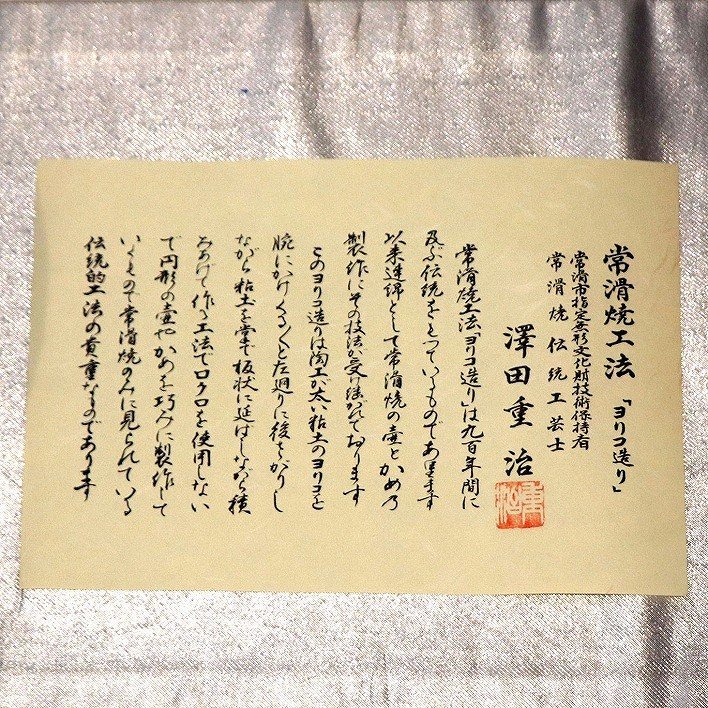 常滑焼工法 「ヨリコ造り」
常滑市指定無形文化財技術保持者
常滑焼伝統工芸士
澤田重治
常滑焼工法「ヨリコ造り」は九百年間に
及ぶ伝統をもっているものであります
以来連綿として常滑焼の壷とかめの
製作にその技法が受け継がれております
このヨリコ造りは陶工が太い粘土のヨリコを
腕にかけくるくると左廻りに後ずさりし
ながら粘土を掌で板状に延ばしながら積
みあげて作る工法でロクロを使用しない
で円形の壷やかめを巧みに製作して
いくもので常滑焼のみに見られている
伝統的工法の貴重なものであります